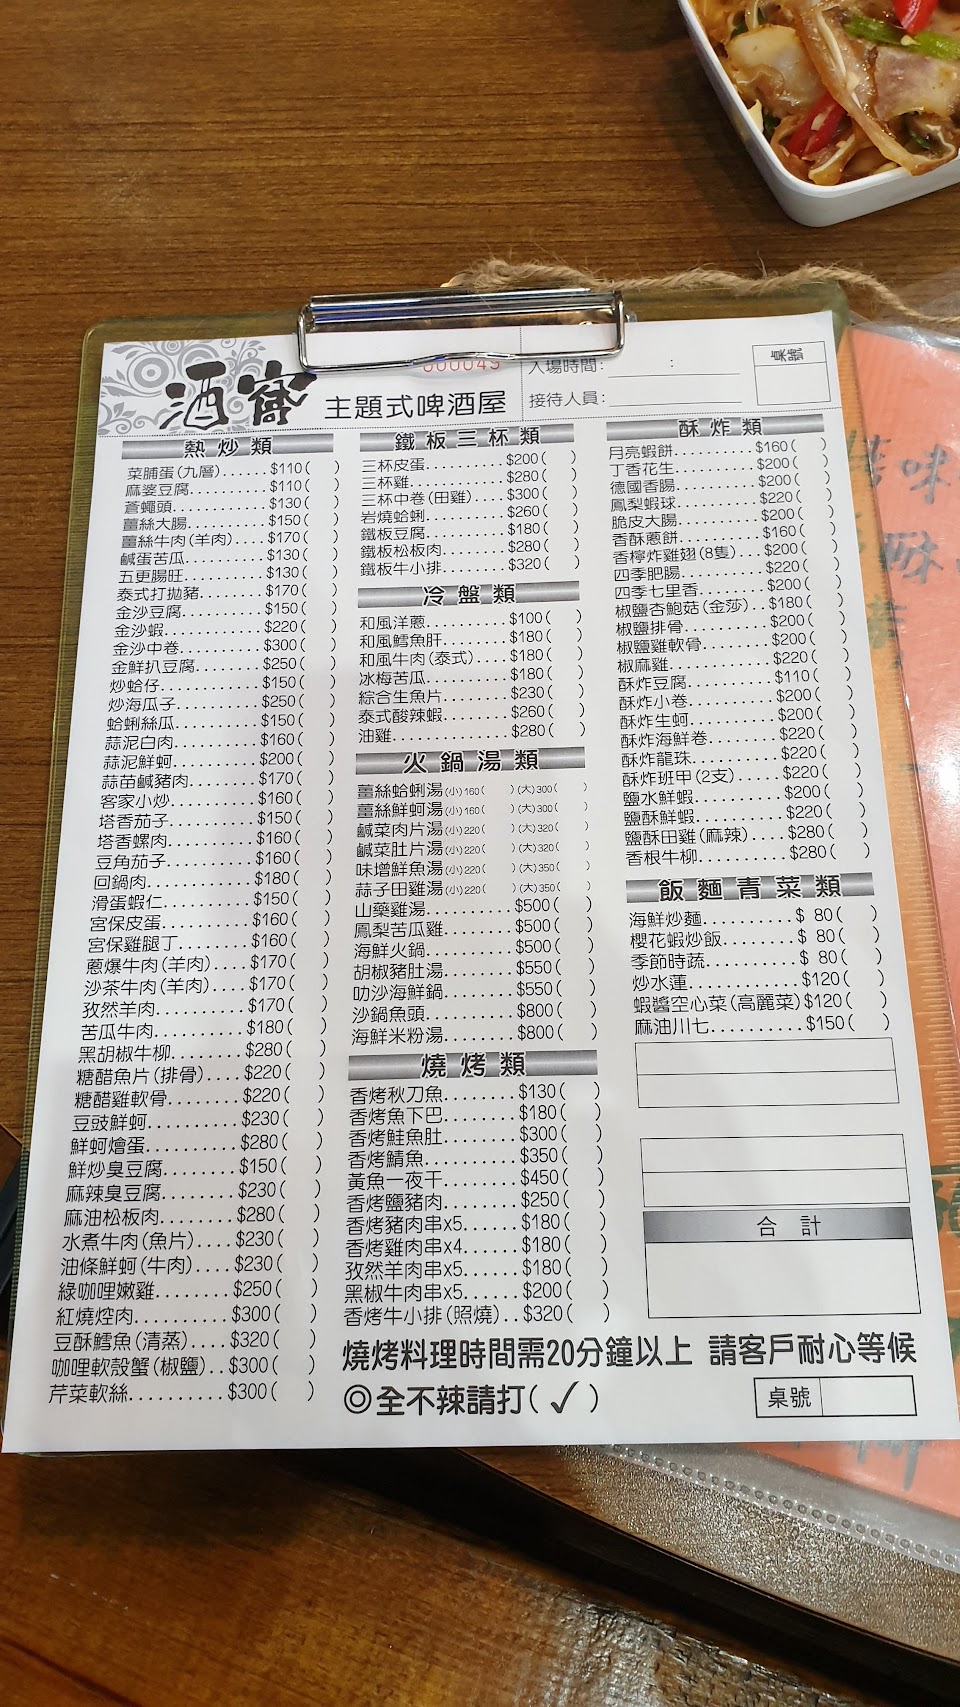 酒窩 主題式啤酒屋
000049
入場時間: :
接待人員:
桌號
熱炒類
菜脯蛋(九層)......$110( )
麻婆豆腐..........$110( )
蒼蠅頭............$130( )
薑絲大腸..........$150( )
薑絲牛肉(羊肉)....$170( )
鹹蛋苦瓜..........$130( )
五更腸旺..........$130( )
泰式打拋豬........$170( )
金沙豆腐..........$150( )
金沙蝦............$220( )
金沙中卷..........$300( )
金鮮扒豆腐........$250( )
炒蛤仔............$150( )
炒海瓜子..........$250( )
蛤蜊絲瓜..........$150( )
蒜泥白肉..........$160( )
蒜泥鮮蚵..........$200( )
蒜苗鹹豬肉........$170( )
客家小炒..........$160( )
塔香茄子..........$150( )
塔香螺肉..........$160( )
豆角茄子..........$160( )
回鍋肉............$180( )
滑蛋蝦仁..........$150( )
宮保皮蛋..........$160( )
宮保雞腿丁........$160( )
蔥爆牛肉(羊肉)....$170( )
沙茶牛肉(羊肉)....$170( )
孜然羊肉..........$170( )
苦瓜牛肉..........$180( )
黑胡椒牛柳........$280( )
糖醋魚片(排骨)....$220( )
糖醋雞軟骨........$220( )
豆豉鮮蚵..........$230( )
鮮蚵燴蛋..........$280( )
鮮炒臭豆腐........$150( )
麻辣臭豆腐........$230( )
麻油松板肉........$280( )
水煮牛肉(魚片)....$230( )
油條鮮蚵(牛肉)....$230( )
綠咖哩嫩雞........$250( )
紅燒焢肉..........$300( )
豆酥鱈魚(清蒸)....$320( )
咖哩軟殼蟹(椒鹽)..$300( )
芹菜軟絲..........$300( )
鐵板三杯類
三杯皮蛋..........$200( )
三杯雞............$280( )
三杯中卷(田雞)....$300( )
岩燒蛤蜊..........$260( )
鐵板豆腐..........$180( )
鐵板松板肉........$280( )
鐵板牛小排........$320( )
冷盤類
和風洋蔥..........$100( )
和風鱈魚肝........$180( )
和風牛肉(泰式)....$180( )
冰梅苦瓜..........$180( )
綜合生魚片........$230( )
泰式酸辣蝦........$260( )
油雞..............$280( )
火鍋湯類
薑絲蛤蜊湯(小)160( )(大)300( )
薑絲鮮蚵湯(小)160( )(大)300( )
鹹菜肉片湯(小)220( )(大)320( )
鹹菜肚片湯(小)220( )(大)320( )
味增鮮魚湯(小)220( )(大)350( )
蒜子田雞湯(小)220( )(大)350( )
山藥雞湯..........$500( )
鳳梨苦瓜雞........$500( )
海鮮火鍋..........$500( )
胡椒豬肚湯........$550( )
叻沙海鮮鍋........$550( )
沙鍋魚頭..........$800( )
海鮮米粉湯........$800( )
燒烤類
香烤秋刀魚........$130( )
香烤魚下巴........$180( )
香烤鮭魚肚........$300( )
香烤鯖魚..........$350( )
黃魚一夜干........$450( )
香烤鹽豬肉........$250( )
香烤豬肉串x5......$180( )
香烤雞肉串x4......$180( )
孜然羊肉串x5......$180( )
黑椒牛肉串x5......$200( )
香烤牛小排(照燒)..$320( )
酥炸類
月亮蝦餅..........$160( )
丁香花生..........$200( )
德國香腸..........$200( )
鳳梨蝦球..........$220( )
脆皮大腸..........$200( )
香酥蔥餅..........$160( )
香檸炸雞翅(8隻)...$200( )
四季肥腸..........$220( )
四季七里香........$200( )
椒鹽杏鮑菇(金莎)..$180( )
椒鹽排骨..........$200( )
椒鹽雞軟骨........$200( )
椒麻雞............$220( )
酥炸豆腐..........$110( )
酥炸小卷..........$200( )
酥炸生蚵..........$200( )
酥炸海鮮卷........$220( )
酥炸龍珠..........$220( )
酥炸班甲(2支).....$220( )
鹽水鮮蝦..........$200( )
鹽酥鮮蝦..........$220( )
鹽酥田雞(麻辣)....$280( )
香根牛柳..........$280( )
飯麵青菜類
海鮮炒麵..........$ 80( )
櫻花蝦炒飯........$ 80( )
季節時蔬..........$ 80( )
炒水蓮............$120( )
蝦醬空心菜(高麗菜)$120( )
麻油川七..........$150( )
合計
燒烤料理時間需20分鐘以上 請客戶耐心等候
◎全不辣請打(✓)
桌號